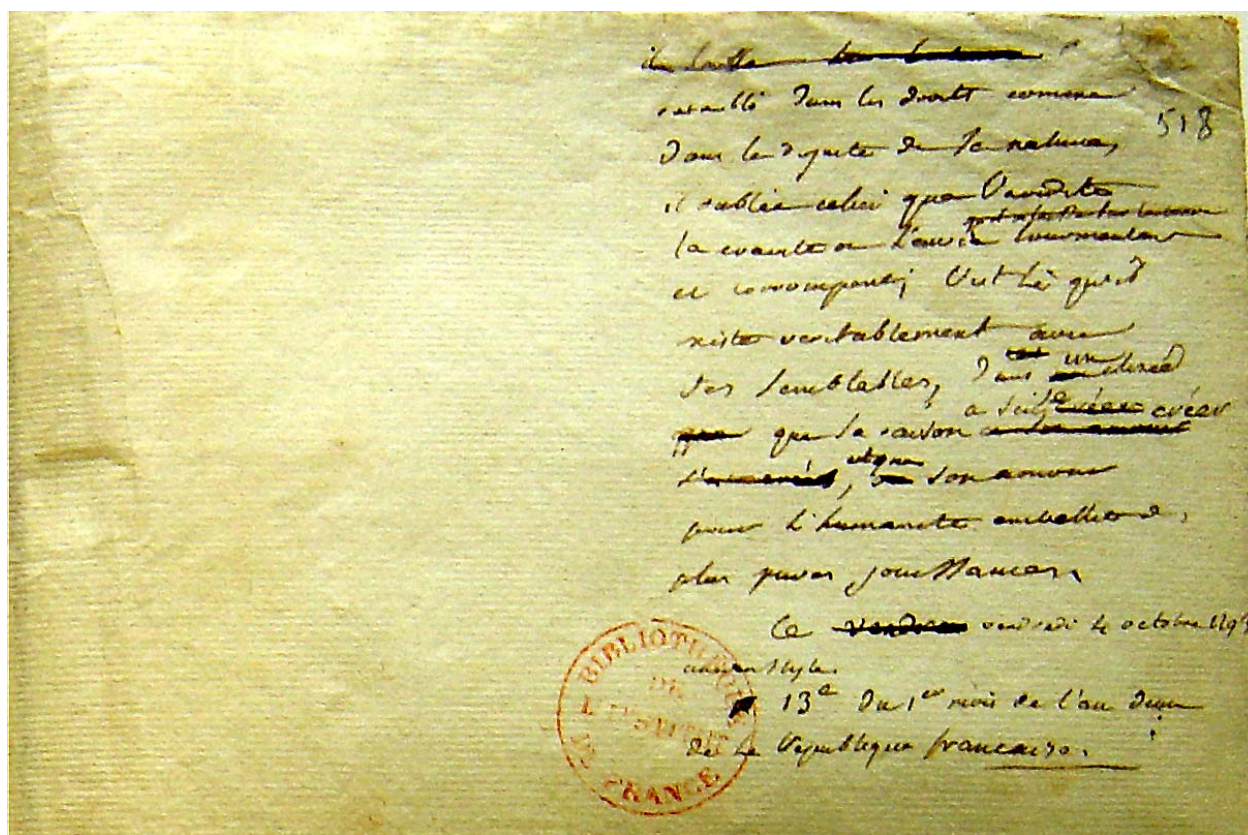 518
retabli dans les droits comme
dans la dignité de sa nature,
il oublie celui que l'avidité
la crainte ou l'envie tourmentent
et corrompent; c'est là qu'il
existe veritablement avec
ses semblables, dans un elisée
a sçu se créer
que sa raison
et que son amour
pour l'humanité embellit de
plus pures jouissances
Ce vendredi 4 octobre 179
ancien style.
13e du 1er mois de l'an deux
de la République francaise.
BIBLIOTHEQUE
DE
L'INSTITUT
DE FRANCE